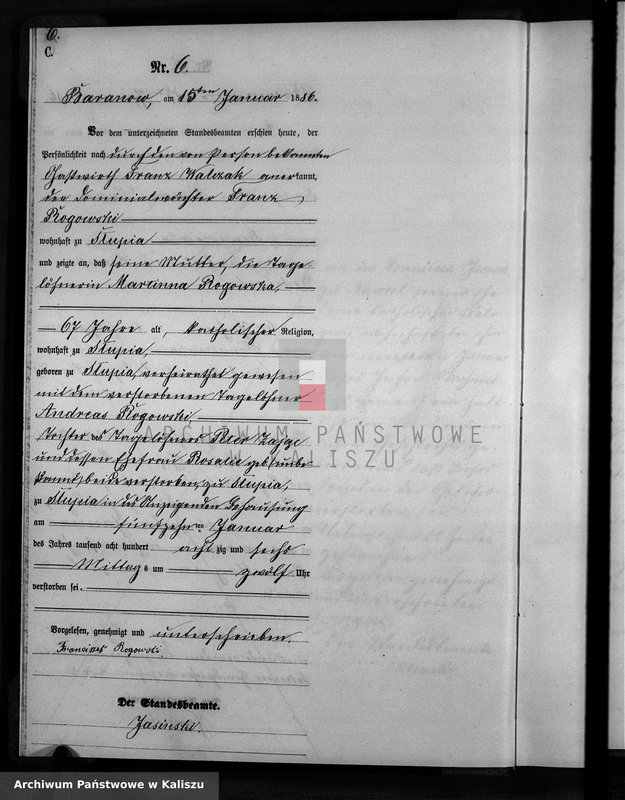 6.
C.
Nr. 6.
Baranow, am 15ten Januar 1886.
Vor dem unterzeichneten Standesbeamten erschien heute, der
Persönlichkeit nach durch den von Person bekannten
Gastwirth Franz Walczak anerkannt,
der Dominialwächter Franz
Rogowski
wohnhaft zu Slupia
und zeigte an, daß seine Mutter, die Tage-
löhnerin Marianna Rogowska,
67 Jahre alt, katholischer Religion,
wohnhaft zu Slupia,
geboren zu Slupia, verheirathet gewesen
mit dem verstorbenen Tagelöhner
Andreas Rogowski,
Tochter des Tagelöhners Peter Zając
und dessen Ehefrau Rosalie geb. unbe-
kannt, beide verstorben zu Slupia,
zu Slupia in des Anzeigenden Behausung
am fünfzehnten Januar
des Jahres tausend acht hundert achtzig und sechs
Mittags um zwölf Uhr
verstorben sei.
Vorgelesen, genehmigt und unterschrieben
Rogowski.
Der Standesbeamte.
Jasinski.
ARCHIWUM PAŃSTWOWE
W KALISZU
Archiwum Państwowe w Kaliszu